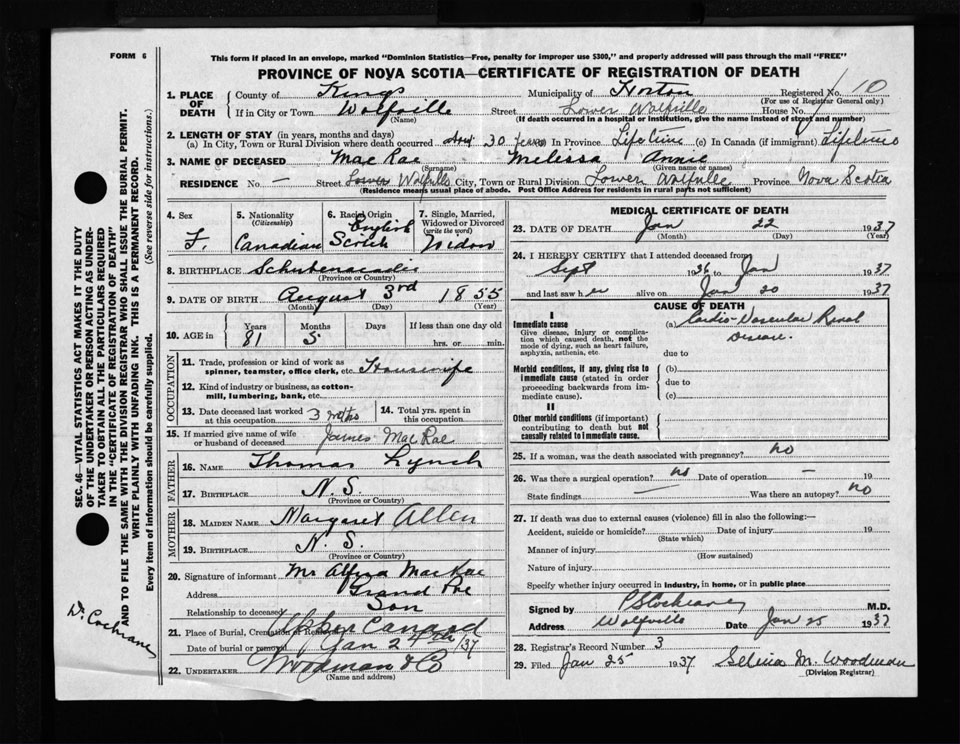 FORM 6
This form if placed in an envelope, marked "Dominion Statistics—Free, penalty for improper use $300," and properly addressed will pass through the mail "FREE"
PROVINCE OF NOVA SCOTIA—CERTIFICATE OF REGISTRATION OF DEATH
1. PLACE OF DEATH
County of Kings Municipality of Horton Registered No. 10
(For use of Registrar General only)
If in City or Town Wolfville Street Lower Wolfville House No.
(Name) (If death occurred in a hospital or institution, give the name instead of street and number)
2. LENGTH OF STAY (in years, months and days)
(a) In City, Town or Rural Division where death occurred 30 years In Province Lifetime (c) In Canada (if immigrant) Lifetime
3. NAME OF DECEASED Mac Rae Melissa Annie
(Surname) (Given name or names)
RESIDENCE No. — Street Lower Wolfville City, Town or Rural Division Lower Wolfville Province Nova Scotia
(Residence means usual place of abode. Post Office Address for residents in rural parts not sufficient)
4. Sex F.
5. Nationality (Citizenship) Canadian
6. Racial Origin English Scotch
7. Single, Married, Widowed or Divorced (write the word) Widow
8. BIRTHPLACE Schubenacadie
(Province or Country)
9. DATE OF BIRTH August 3rd 1855
(Month) (Day) (Year)
10. AGE in Years 81 Months 5 Days If less than one day old
hrs. or min.
OCCUPATION
11. Trade, profession or kind of work as spinner, teamster, office clerk, etc. Housewife
12. Kind of industry or business, as cotton-mill, lumbering, bank, etc.
13. Date deceased last worked at this occupation 3 mths
14. Total yrs. spent in this occupation
15. If married give name of wife or husband of deceased James MacRae
FATHER
16. NAME Thomas Lynch
17. BIRTHPLACE N. S.
(Province or Country)
MOTHER
18. MAIDEN NAME Margaret Allen
19. BIRTHPLACE N. S.
(Province or Country)
20. Signature of informant Mr MacRae
Address Grand Pre
Relationship to deceased Son
21. Place of Burial, Cremation or Removal Upper Canard
Date of burial or removal Jan 24th/37
22. UNDERTAKER Woodman & Co
(Name and address)
MEDICAL CERTIFICATE OF DEATH
23. DATE OF DEATH Jan 22 1937
(Month) (Day) (Year)
24. I HEREBY CERTIFY that I attended deceased from
Sept 1936 to Jan 1937
and last saw her alive on Jan 20 1937
CAUSE OF DEATH
I
Immediate cause (a) Cardio-Vascular Renal Disease.
Give disease, injury or complication which caused death, not the mode of dying, such as heart failure, asphyxia, asthenia, etc.
due to
Morbid conditions, if any, giving rise to immediate cause (stated in order proceeding backwards from immediate cause).
(b)
due to
(c)
II
Other morbid conditions (if important) contributing to death but not causally related to immediate cause.
25. If a woman, was the death associated with pregnancy? no
26. Was there a surgical operation? no Date of operation — 19
State findings — Was there an autopsy? no
27. If death was due to external causes (violence) fill in also the following:—
Accident, suicide or homicide? Date of injury 19
(State which)
Manner of injury
(How sustained)
Nature of injury
Specify whether injury occurred in industry, in home, or in public place
Signed by Cochrane M.D.
Address Wolfville Date Jan 25 1937
28. Registrar's Record Number 3
29. Filed Jan 25 1937 Selina M. Woodman
(Division Registrar)
SEC. 46—VITAL STATISTICS ACT MAKES IT THE DUTY
OF THE UNDERTAKER OR PERSON ACTING AS UNDER-
TAKER TO OBTAIN ALL THE PARTICULARS REQUIRED
IN THE "CERTIFICATE OF REGISTRATION OF DEATH"
AND TO FILE THE SAME WITH THE DIVISION REGISTRAR WHO SHALL ISSUE THE BURIAL PERMIT.
WRITE PLAINLY WITH UNFADING INK. THIS IS A PERMANENT RECORD.
Every item of information should be carefully supplied. (See reverse side for instructions.)
Dr. Cochrane